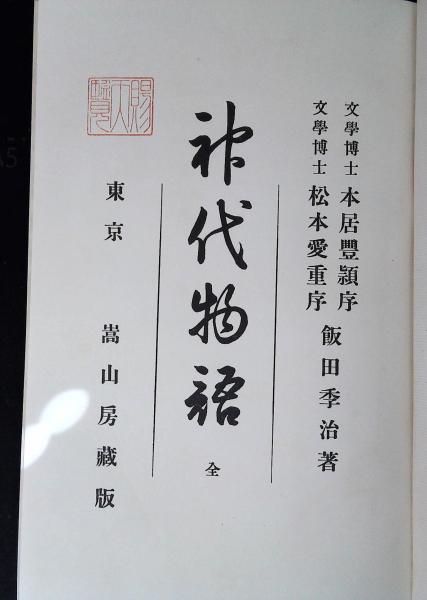 文學博士 本居豐頴序
文學博士 松本愛重序
飯田季治著
神代物語 全
東京 嵩山房藏版
賜天覽